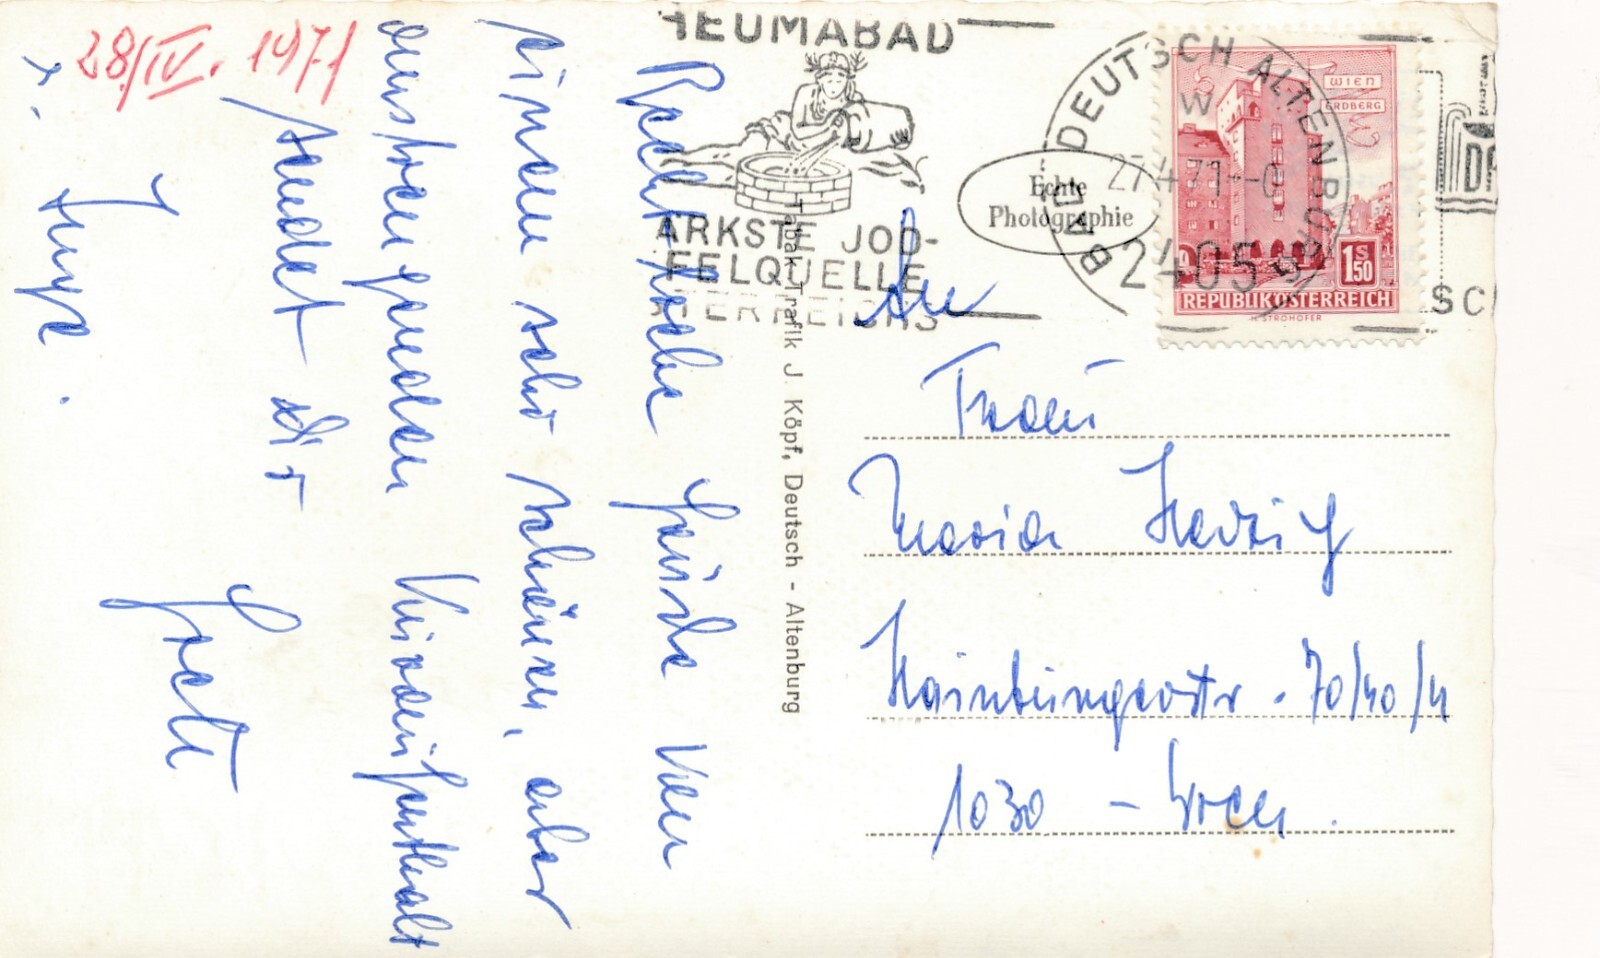 28/IV. 1971
Recht herzliche Grüße von
einem sehr schönen, aber
anstrengenden Kuraufenthalt
sendet Dir
Grete
u. Inge.
HEUMABAD
ÄRKSTE JOD-
FELQUELLE
TERREICHS
Tabak Trafik J. Köpf, Deutsch - Altenburg
Echte
Photographie
BAD DEUTSCH ALTENBURG
27.4.71
2405
WIEN
ERDBERG
1 S 50
REPUBLIK ÖSTERREICH
H. STROHOFER
SC
An
Frau
Maria
Hainburgerstr. 70/40/4
1030 - Wien.